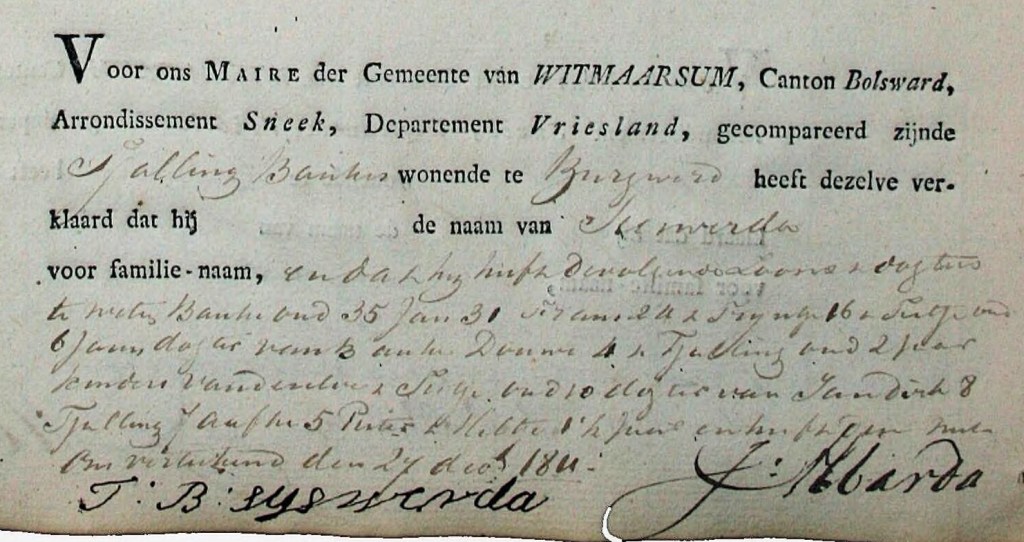 Voor ons MAIRE der Gemeente van WITMAARSUM, Canton Bolsward,
Arrondissement Sneek, Departement Vriesland, gecompareerd zijnde
Tjalling Baukes wonende te Burgwerd heeft dezelve ver-
klaard dat hij de naam van
voor familie-naam, en dat hij heeft de volgende Soons & dogters
te weten Bauke oud 35 Jan 31 24 & Trijntje 16 & oud
6 Jaaren dogter van Bauke Douwe 4 & Tjalling oud 2 Jaar
& oud 10 dogter van Jan dirk 8
Tjalling 7 Aafke 5 Pieter & Hette 1½ Jaar en heeft
den 27 decb 1811.
T: B: syswerda